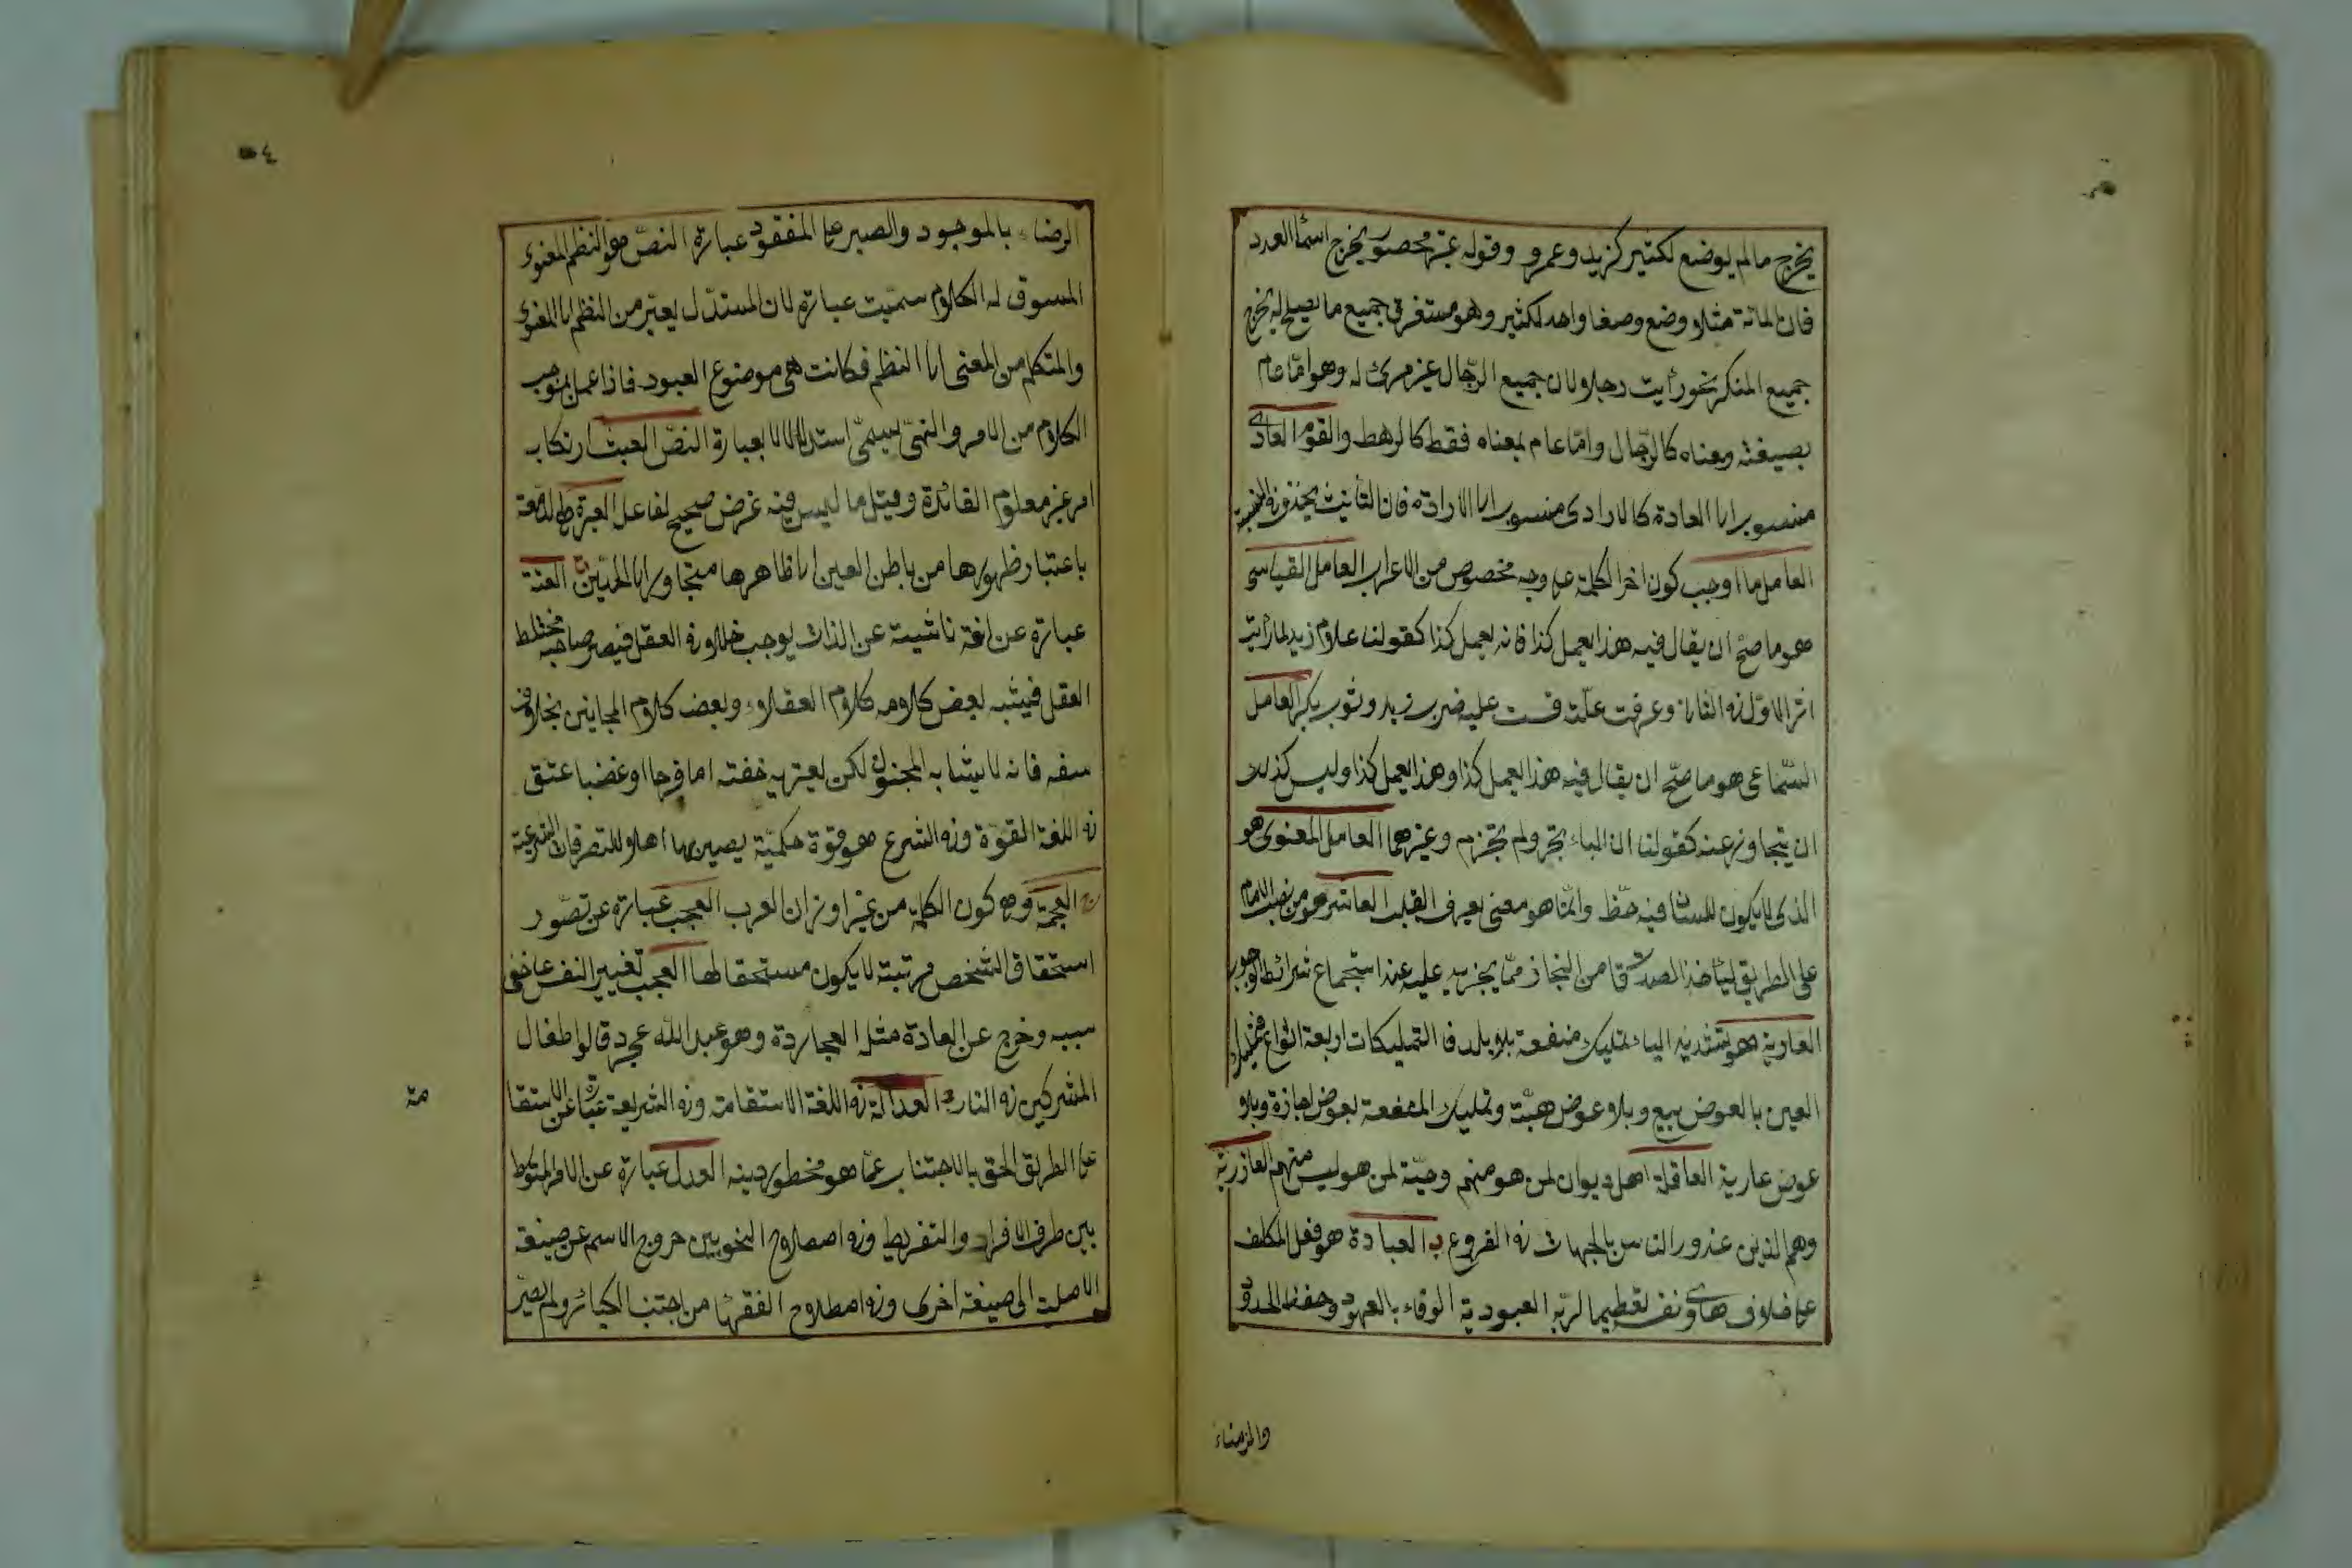 يخرج مالم يوضع لكثير كزيد وعمرو وقوله غير محصور يخرج اسماء العدد
فان المائة مثلا وضع وضعا واحدا لكثير وهو مستغرق جميع ما يصلح له يخرج
جميع المنكر نحو رأيت رجلا لان جميع الرجال غير مرئ له وهو اما عام
بصيغته ومعناه كالرجال واما عام بمعناه فقط كالرهط والقوم العادى
منسوب الى العادة كالارادى منسوب الى الارادة فان التأنيث يحذف فى النسبة
العامل ما اوجب كون اخر الكلمة على وجه مخصوص من الاعراب العامل القياسى
هو ما صح ان يقال فيه هذا يعمل كذا فانه يعمل كذا كقولنا غلام زيد لما رأيت
اثر الاول فى الثانى وعرفت علته قست عليه ضرب زيد وثوب بكر العامل
السماعى هو ما صح ان يقال فيه هذا يعمل كذا وهذا يعمل كذا وليس كذلك
ان يتجاوز عنه كقولنا ان الباء تجر ولم تجزم وغيرهما العامل المعنوى هو
الذى لا يكون للسان فيه حظ وانما هو معنى يعرف القلب العاشر هو من نصبه الامام
على الطريق لياخذ الصدقا من التجار مما يجزيه عليه عند استجماع شرائط الوجوب
العارية هو بتشديد الياء تمليك منفعة بلا بلد فا التمليكات اربعة انواع فتمليك
العين بالعوض بيع وبلا عوض هبة وتمليك المنفعة بعوض اجازة وبلا
عوض عارية العاقلة اهل ديوان لمن هو منهم وحية لمن هو ليس منهم العاذرية
وهم الذين عذور الناس بالجهات فى الفروع ب العبادة هو فعل المكلف
على خلاف هاوى نفسه تعظيما لربه العبودية الوفاء بالعهود وحفظ الحدود
والرضاء
الرضاء بالموجود والصبر على المفقود عبارة النص هو النظم المعنوى
المسوق له الكلام سميت عبارة لان المستدل يعبر من النظم الى المعنى
والمتكلم من المعنى الى النظم فكانت هى موضوع العبور فاذا عمل بموجب
الكلام من الامر والنهى يسمى استدلالا بعبارة النص العبث ارتكاب
امر غير معلوم الفائدة وقيل ما ليس فيه غرض صحيح لفاعل العبرة
باعتبار ظهورها من باطن العين الى ظاهرها متجاورا الى الخدين ت العتة
عبارة عن افة ناشية عن الذات يوجب خللا فى العقل فيصير صاحبه مختلط
العقل فيشبه بعض كلامه كلام العقلاء وبعض كلام المجانين بخلاف
سفه فانه لا يشابه المجنون لكن يعتريه خفته اما فرحا او غضبا عتق
فى اللغة القوة وفى الشرع هو قوة حكمية يصير بها اهلا للتصرفات الشرعية
ج العجمة وهى كون الكلمة من غير اوزان العرب العجب عبارة عن تصور
استحقاق الشخص مرتبة لا يكون مستحقا لها العجب تغيير النفس عما خفى
سببه وخرج عن العادة مثل العجاردة وهو عبد الله عجرد قالوا طفال
المشركين فى النار د العدالة فى اللغة الاستقامت وفى الشريعة عبارة عن الاستقا
مة
على الطريق الحق بالاجتناب عما هو مخطور دينه العدل عبارة عن الامر المتوسط
بين طرفى الافراد والتفريط وفى اصطلاح النحويين خروج الاسم عن صيغة
الاصلية الى صيغة اخرى وفى اصطلاح الفقهاء من اجتنب الكبائر ولم يصر